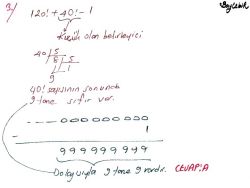 9)
120! + 40! - 1
Küçük olan belirleyici
40 | 5
8 | 5
1
9
40! sayısının sonunda
9 tane sıfır var.
---000000000
- 1
999999999
Dolayısıyla 9 tane 9 vardır. CEVAP: A